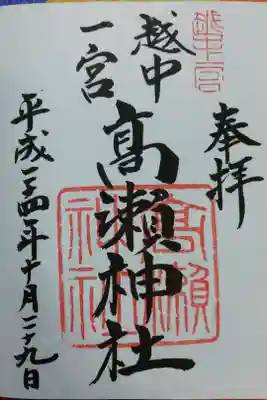 奉拝
越中
一宮
高瀬神社
平成二四年十月二十九日
越中一宮
高瀬神社